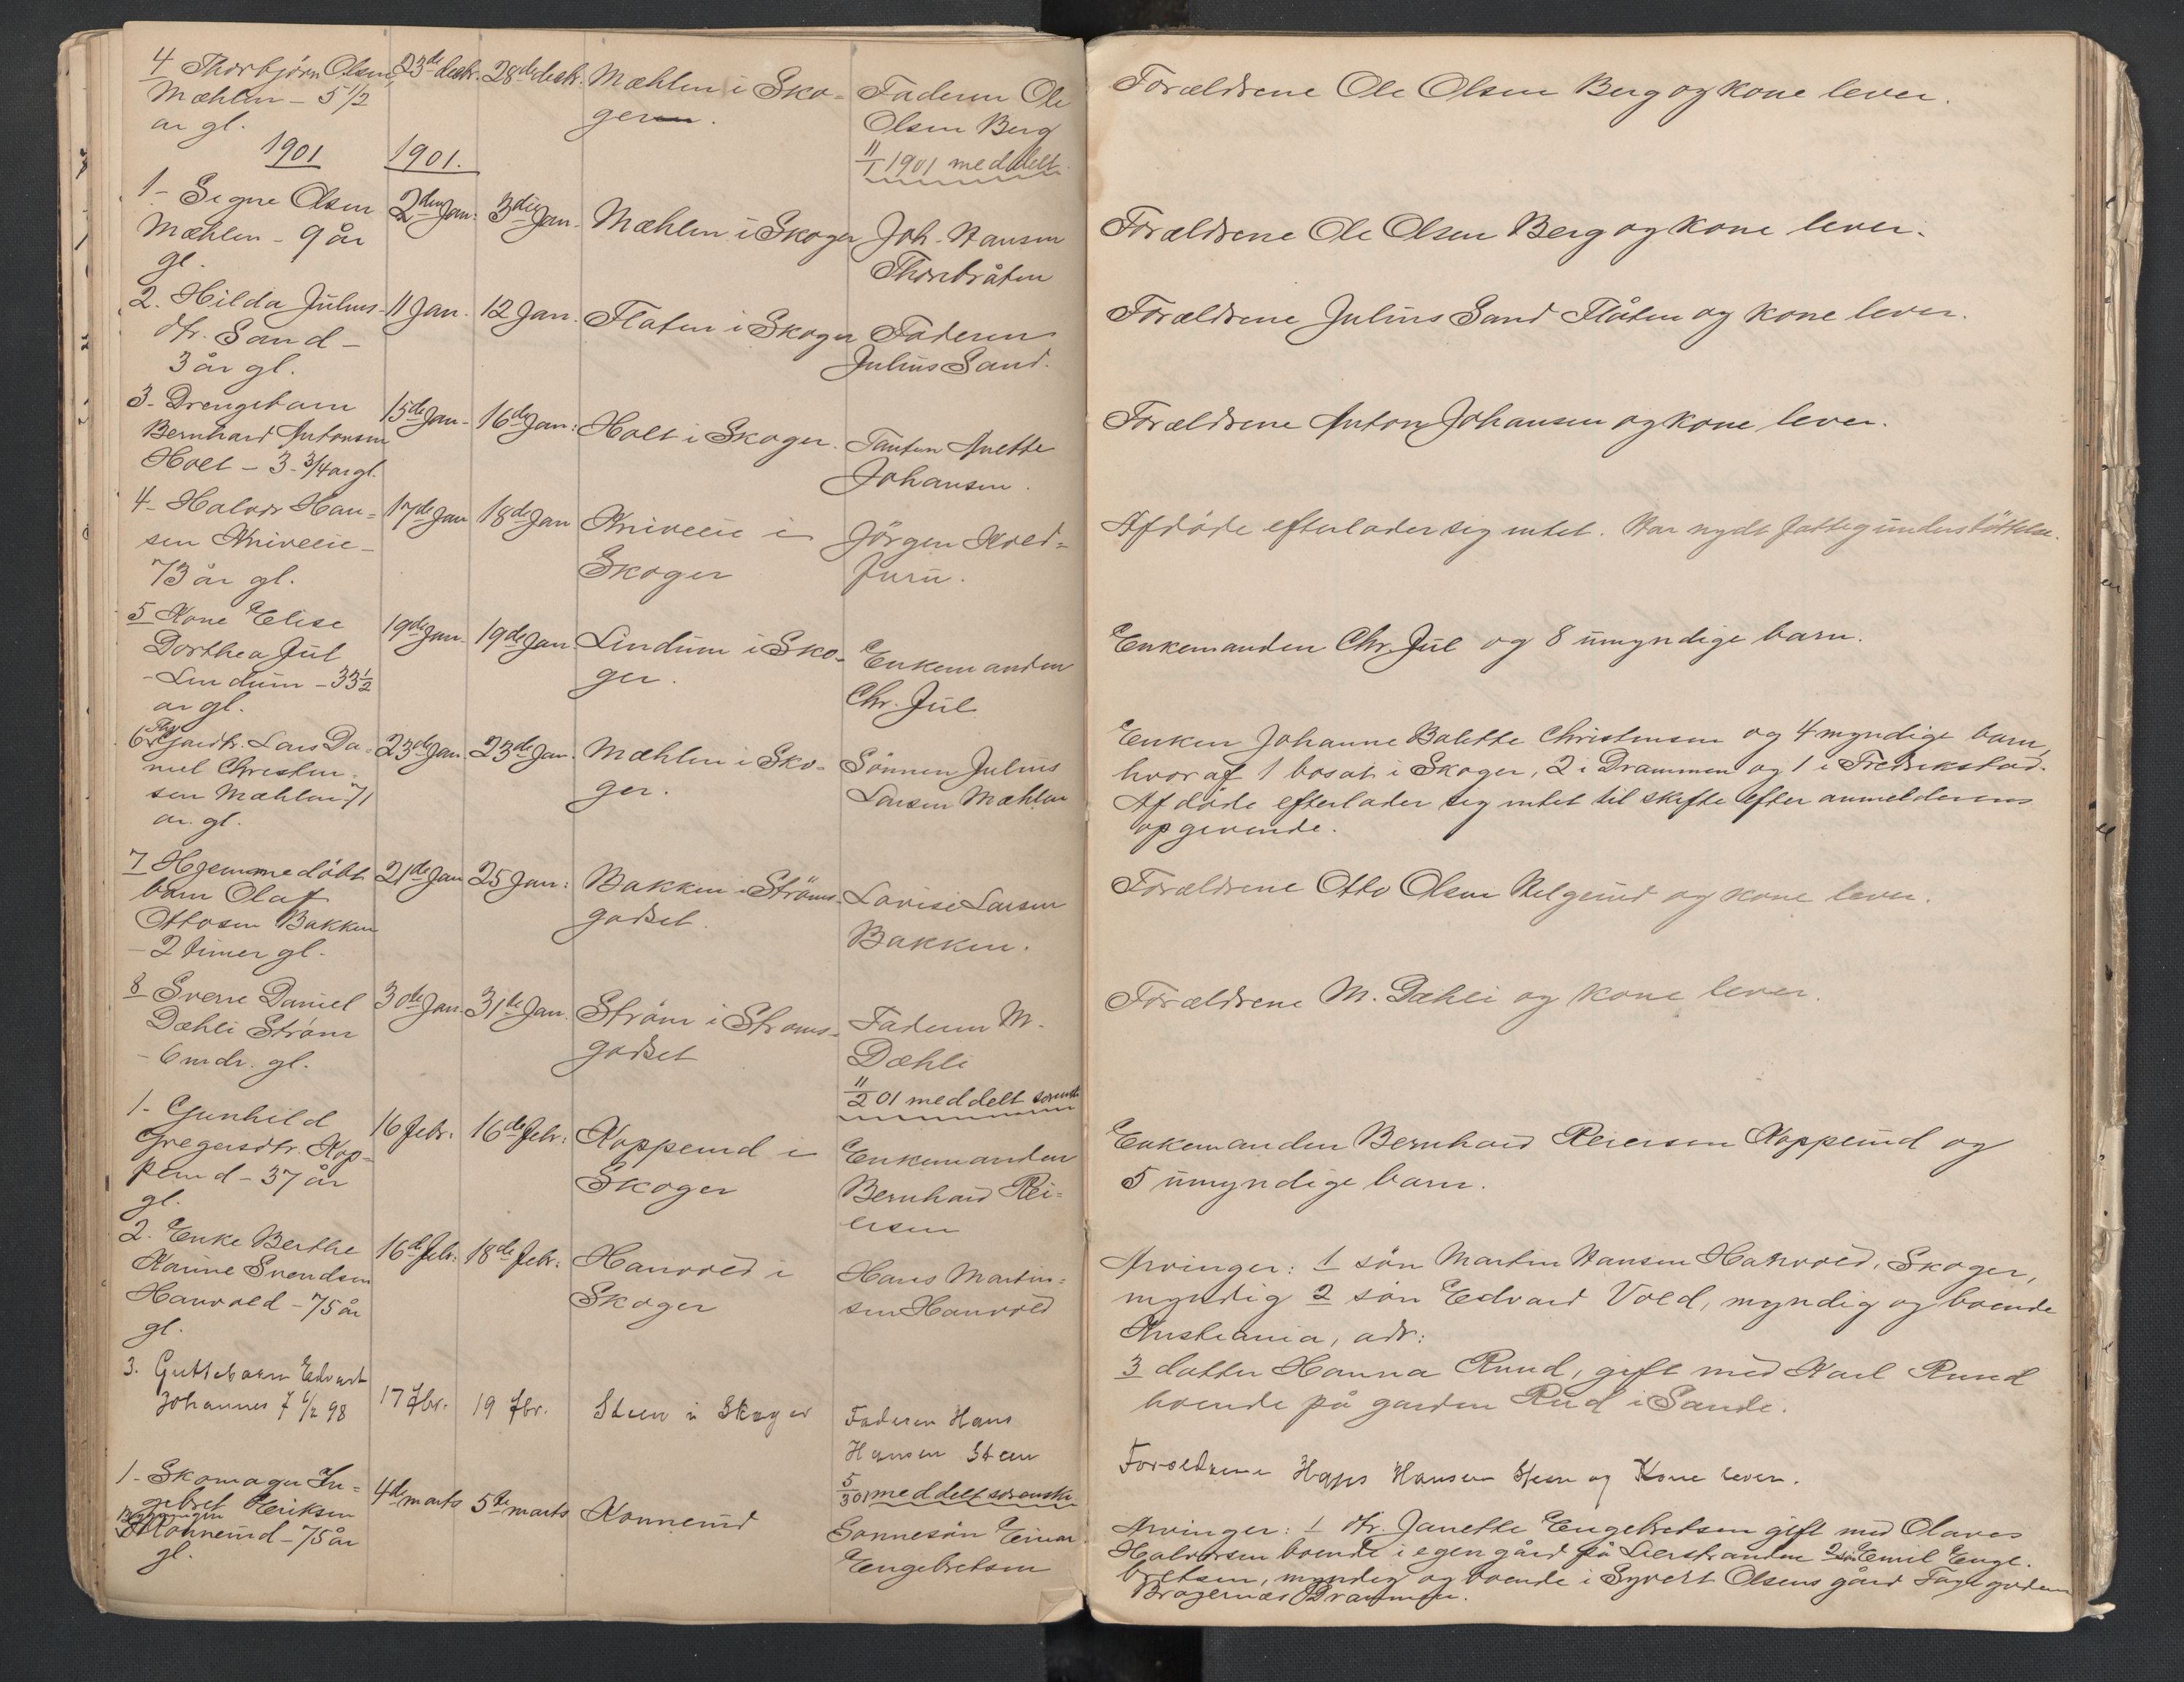 4 Thorbjørn Olsen
Mæhlen - 5 1/2
år gl.
23de decbr.
28de decbr.
Mæhlen i Sko-
geren.
Faderen Ole
Olsen Berg
11/1 1901 meddelt
Forældrene Ole Olsen Berg og kone lever.
1901
1901.
1- Signe Olsen
Mæhlen - 9 år
gl.
2den Jan.
3die Jan.
Mæhlen i Skoger
Joh. Hansen
Thorsbråten
Forældrene Ole Olsen Berg og kone lever.
2. Hilda Julius-
dtr. Sand -
3 år gl.
11 Jan.
12 Jan.
Flaten i Skoger
Faderen
Julius Sand.
Forældrene Julius Sand Flåten og kone lever.
3- Drengebarn
Bernhard Antonsen
Holt - 3-3/4 år gl.
15de Jan-
16de Jan:
Holt i Skoger.
Tanten Anette
Johansen.
Forældrene Anton Johansen og kone lever.
4- Halvor Han-
sen Kniveeie -
73 år gl.
17de Jan
18de Jan
Kniveeie i
Skoger
Jörgen Kold-
Furu.
Afdöde efterlader sig intet. Har nydt fattigunderstöttelse.
5 Kone Elise
Dorthea Jul
-Lindum - 33 1/2
år gl.
19de Jan-
19de Jan
Lindum i Sko-
ger.
Enkemanden
Chr. Jul
Enkemanden Chr. Jul og 8 umyndige barn.
6 Gardbr. Lars Da-
niel Christen-
sen Mæhlen 71
år. gl.
23de Jan.
23de Jan.
Mæhlen i Sko-
ger.
Sönnen Julius
Larsen Mæhlen
Enken Johanne Bolette Christensen og 4 myndige barn,
hvoraf 1 bosat i Skoger, 2 i Drammen og 1 i Fredrikstad.
Afdöde efterlader sig intet til skifte efter anmelderens
opgivende.
7 Hjemmedöbt
barn Olaf
Ottosen Bakken
- 2 timer gl.
21de Jan
25 Jan:
Bakken i Ströms-
godset.
Lovise Larsen
Bakken.
Forældrene Otto Olsen Helgerud og kone lever.
8 Sverre Daniel
Dæhli Ström
- 6 mdr. gl.
30de Jan.
31te Jan.
Ström i Ströms-
godset
Faderen M.
Dæhli
11/2 01 meddelt sorensk.
Forældrene M. Dæhli og kone lever.
1- Gunhild
Gregersdtr. Kop-
perud - 37 år
gl.
16 febr.
16de febr:
Kopperud i
Skoger
Enkemanden
Bernhard Rei-
ersen
Enkemanden Bernhard Reiersen Kopperud og
5 umyndige barn.
2. Enke Berthe
Karine Svendsen
Hanvold - 75 år
gl.
16de febr:
18de febr.
Hanvold i
Skoger
Hans Martin-
sen Hanvold
Arvinger: 1 sön Martin Hansen Hanvold, Skoger,
myndig 2 sön Edvard Vold, myndig og boende
Kristiania, adr:
3 datter Hanna Ruud, gift med Karl Ruud
boende på garden Rud i Sande.
3. Guttebarn Edvart
Johannes f 6/2 98
17 Fbr.
19 Fbr.
Steen i Skoger
Faderen Hans
Hansen Steen
5/3 01 meddelt sorenskr.
Forældrene Hans Hansen Steen og Kone lever.
1- Skomager In-
gebret Eriksen
Konnerud - 75 år
gl.
4de marts
5te marts
Konnerud
Sonnesön Einar
Engebretsen
Arvinger: 1 dtr. Janette Engebretsen gift med Olaves
Halvorsen boende i egen gård på Lierstranden 2 sön Emil Enge-
bretsen, myndig og boende i Syvert Olsens gård
Bragernæs Drammen.